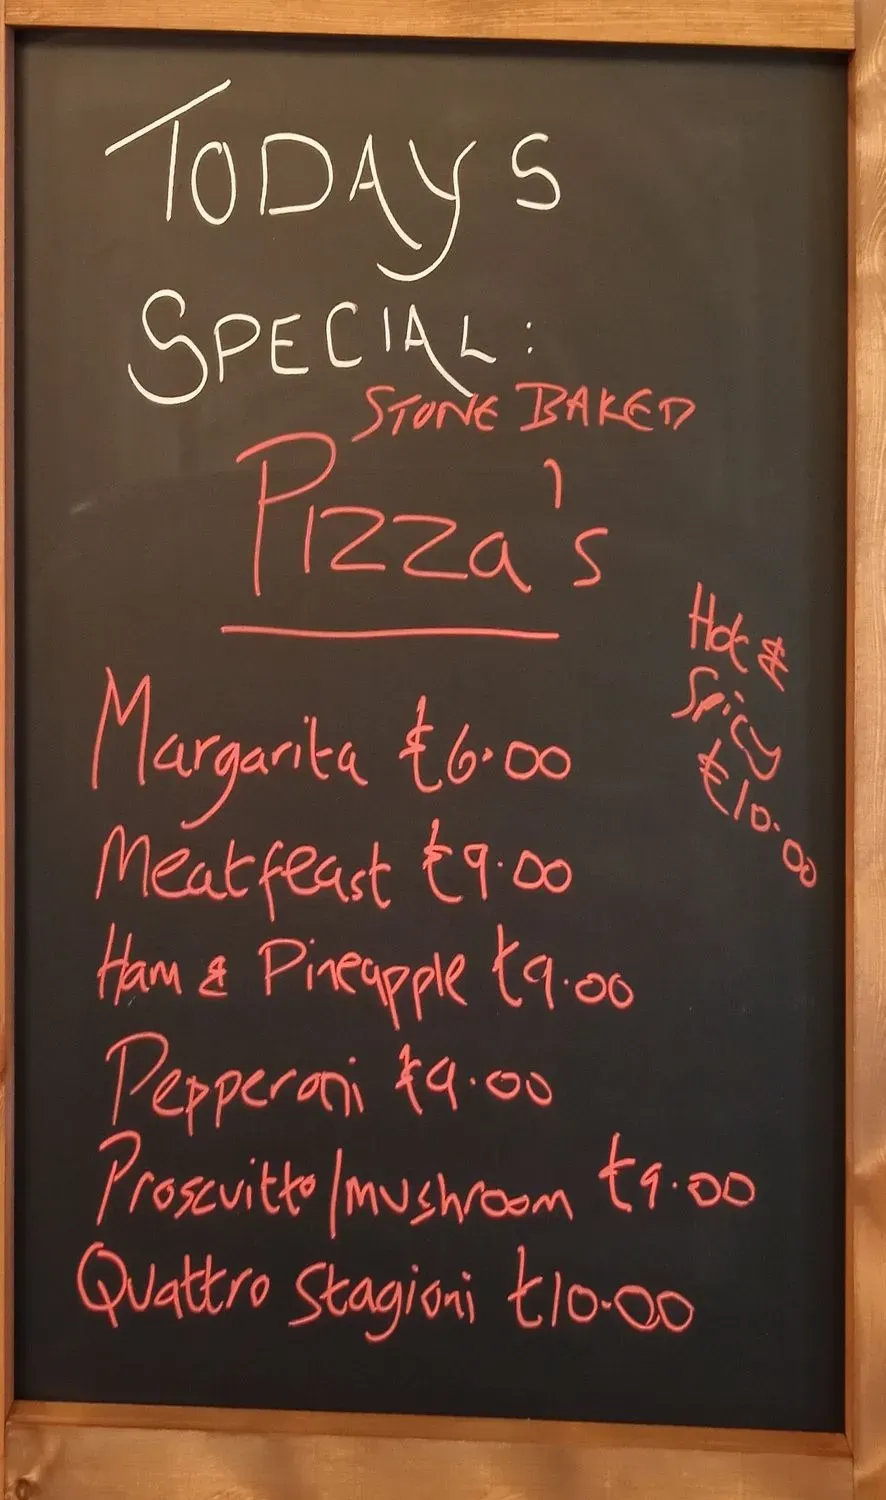 TODAYS
SPECIAL:
STONE BAKED
PIZZa's
Hot &
Spicy
£10.00
Margarita £6.00
Meatfeast £9.00
Ham & Pineapple £9.00
Pepperoni £9.00
Proscuitto/mushroom £9.00
Quattro Stagioni £10.00